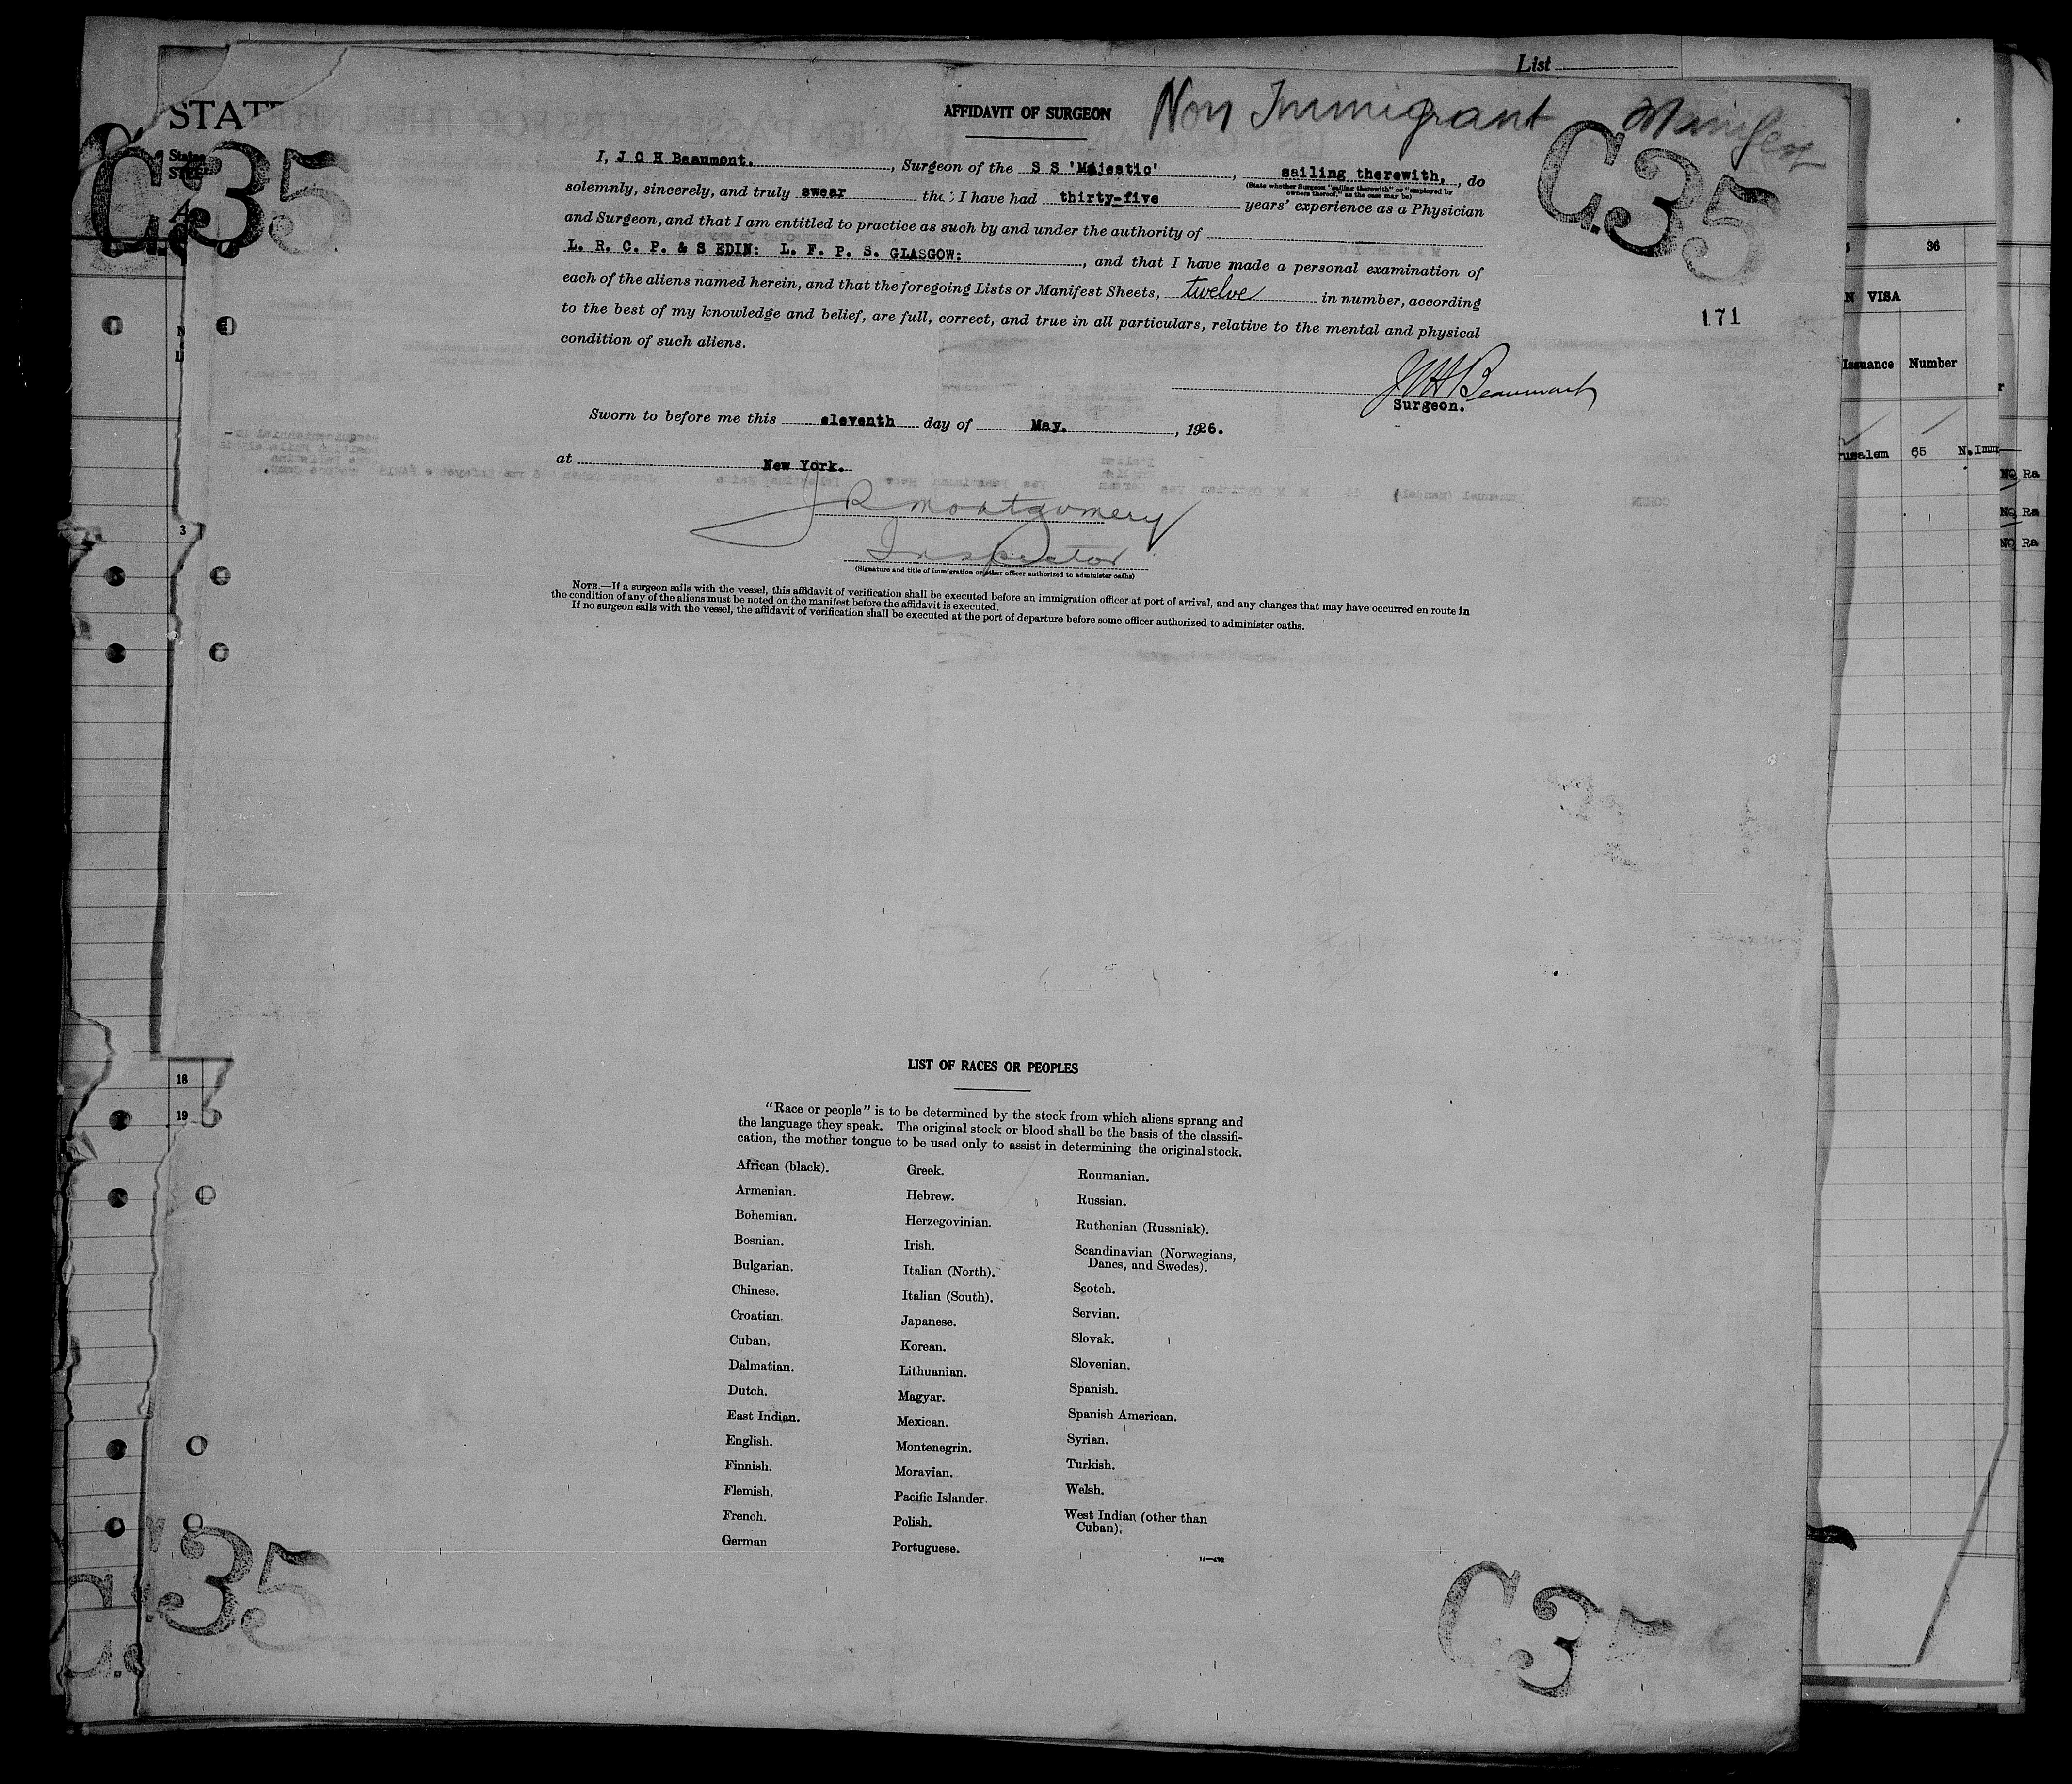 List
STAT
AFFIDAVIT OF SURGEON
Non Immigrant Manifest
C.35
C.35
States
I, J C H Beaumont. , Surgeon of the S S 'Majestic' , sailing therewith, , do
(State whether Surgeon "sailing therewith" or "employed by
owners thereof," as the case may be)
solemnly, sincerely, and truly swear tha I have had thirty-five years' experience as a Physician
and Surgeon, and that I am entitled to practice as such by and under the authority of
L. R. C. P. & S EDIN: L. F. P. S. GLASGOW: , and that I have made a personal examination of
each of the aliens named herein, and that the foregoing Lists or Manifest Sheets, twelve in number, according
to the best of my knowledge and belief, are full, correct, and true in all particulars, relative to the mental and physical
condition of such aliens.
171
36
N VISA
Issuance Number
J C H Beaumont
Surgeon.
Sworn to before me this eleventh day of May. , 1926.
rusalem 65 N.Imm
at New York.
NO Ra
NO Ra
NO Ra
J R Montgomery
3
Inspector
(Signature and title of immigration or other officer authorized to administer oaths)
NOTE.—If a surgeon sails with the vessel, this affidavit of verification shall be executed before an immigration officer at port of arrival, and any changes that may have occurred en route in
the condition of any of the aliens must be noted on the manifest before the affidavit is executed.
If no surgeon sails with the vessel, the affidavit of verification shall be executed at the port of departure before some officer authorized to administer oaths.
18
19
LIST OF RACES OR PEOPLES
"Race or people" is to be determined by the stock from which aliens sprang and
the language they speak. The original stock or blood shall be the basis of the classifi-
cation, the mother tongue to be used only to assist in determining the original stock.
African (black).
Armenian.
Bohemian.
Bosnian.
Bulgarian.
Chinese.
Croatian.
Cuban.
Dalmatian.
Dutch.
East Indian.
English.
Finnish.
Flemish.
French.
German
Greek.
Hebrew.
Herzegovinian.
Irish.
Italian (North).
Italian (South).
Japanese.
Korean.
Lithuanian.
Magyar.
Mexican.
Montenegrin.
Moravian.
Pacific Islander.
Polish.
Portuguese.
Roumanian.
Russian.
Ruthenian (Russniak).
Scandinavian (Norwegians,
Danes, and Swedes).
Scotch.
Servian.
Slovak.
Slovenian.
Spanish.
Spanish American.
Syrian.
Turkish.
Welsh.
West Indian (other than
Cuban).
35
C35